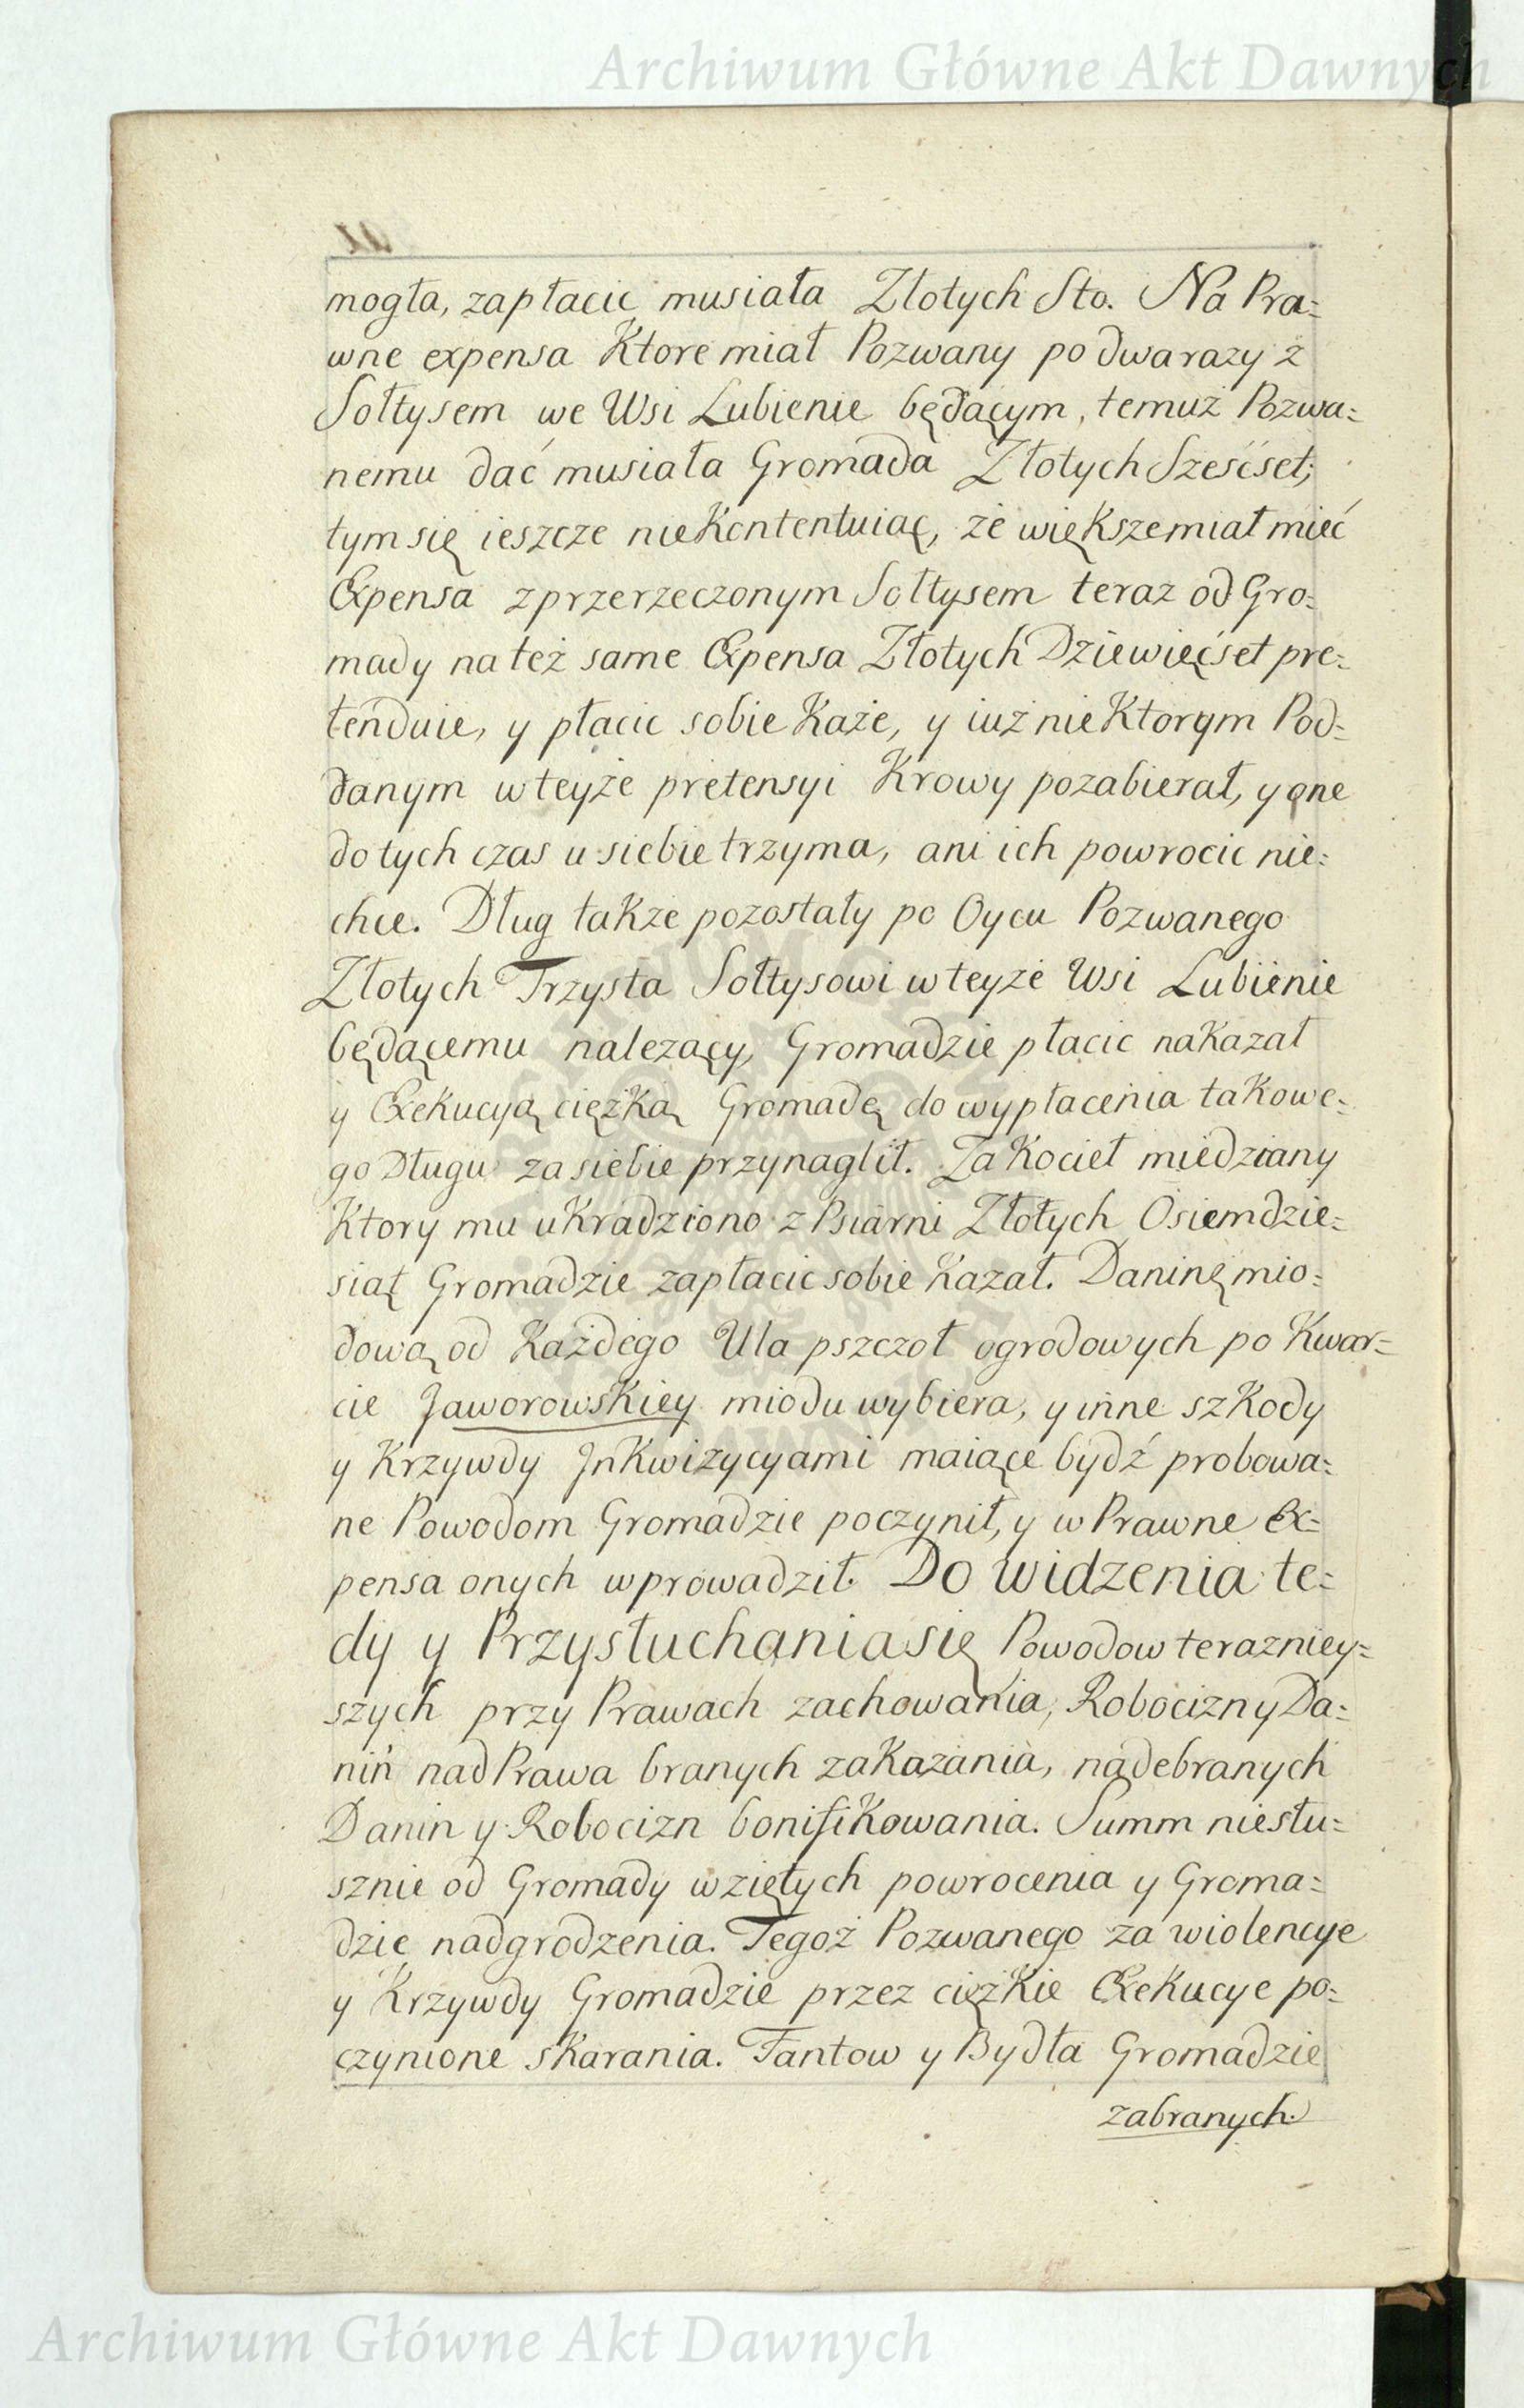 Archiwum Główne Akt Dawnych
mogła, zapłacic musiała Złotych Sto. Na Pra=
wne expensa Ktore miał Pozwany po dwa razy z
Sołtysem we Wsi Lubienie będącym, temuż Pozwa=
nemu dać musiała Gromada Złotych Sześćset;
tym się ieszcze nie Kontentuiąc, że większe miał mieć
Expensa z przerzeczonym Sołtysem teraz od Gro=
mady na też same Expensa Złotych Dziewięćset pre=
tenduie, y płacic sobie Każe, y iuż nie Ktorym Pod=
danym w teyże pretensyi Krowy pozabierał, y one
do tych czas u siebie trzyma, ani ich powrocic nie=
chce. Dług także pozostały po Oycu Pozwanego
Złotych Trzysta Sołtysowi w teyże Wsi Lubienie
będącemu nalezący, Gromadzie płacic nakazał
y Exekucyą cięzką Gromadę do wypłacenia takowe=
go Długu za siebie przynaglił. Za Kocieł miedziany
Ktory mu ukradziono z Psiarni Złotych Osiemdzie=
siąt Gromadzie zapłacic sobie Kazał. Daninę mio=
dową od Każdego Ula pszczoł ogrodowych po Kwar=
cie Jaworowskiey miodu wybiera, y inne szkody
y Krzywdy Jnkwizycyami maiące bydź probowa=
ne Powodom Gromadzie poczynił, y w Prawne Ex=
pensa onych wprowadził. Do widzenia te=
dy y Przysłuchania się Powodow terazniey=
szych przy Prawach zachowania, Robocizn y Da=
nin nad Prawa branych zakazania, nadebranych
Danin y Robocizn bonifikowania. Summ niesłu=
sznie od Gromady wziętych powrocenia y Groma=
dzie nadgrodzenia. Tegoż Pozwanego za wiolencye
y Krzywdy Gromadzie przez ciężkie Exekucye po=
czynione skarania. Fantow y Bydła Gromadzie
zabranych.
Archiwum Główne Akt Dawnych